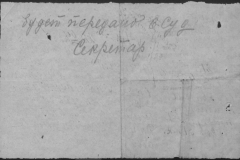 будет передано в суд
Секретар